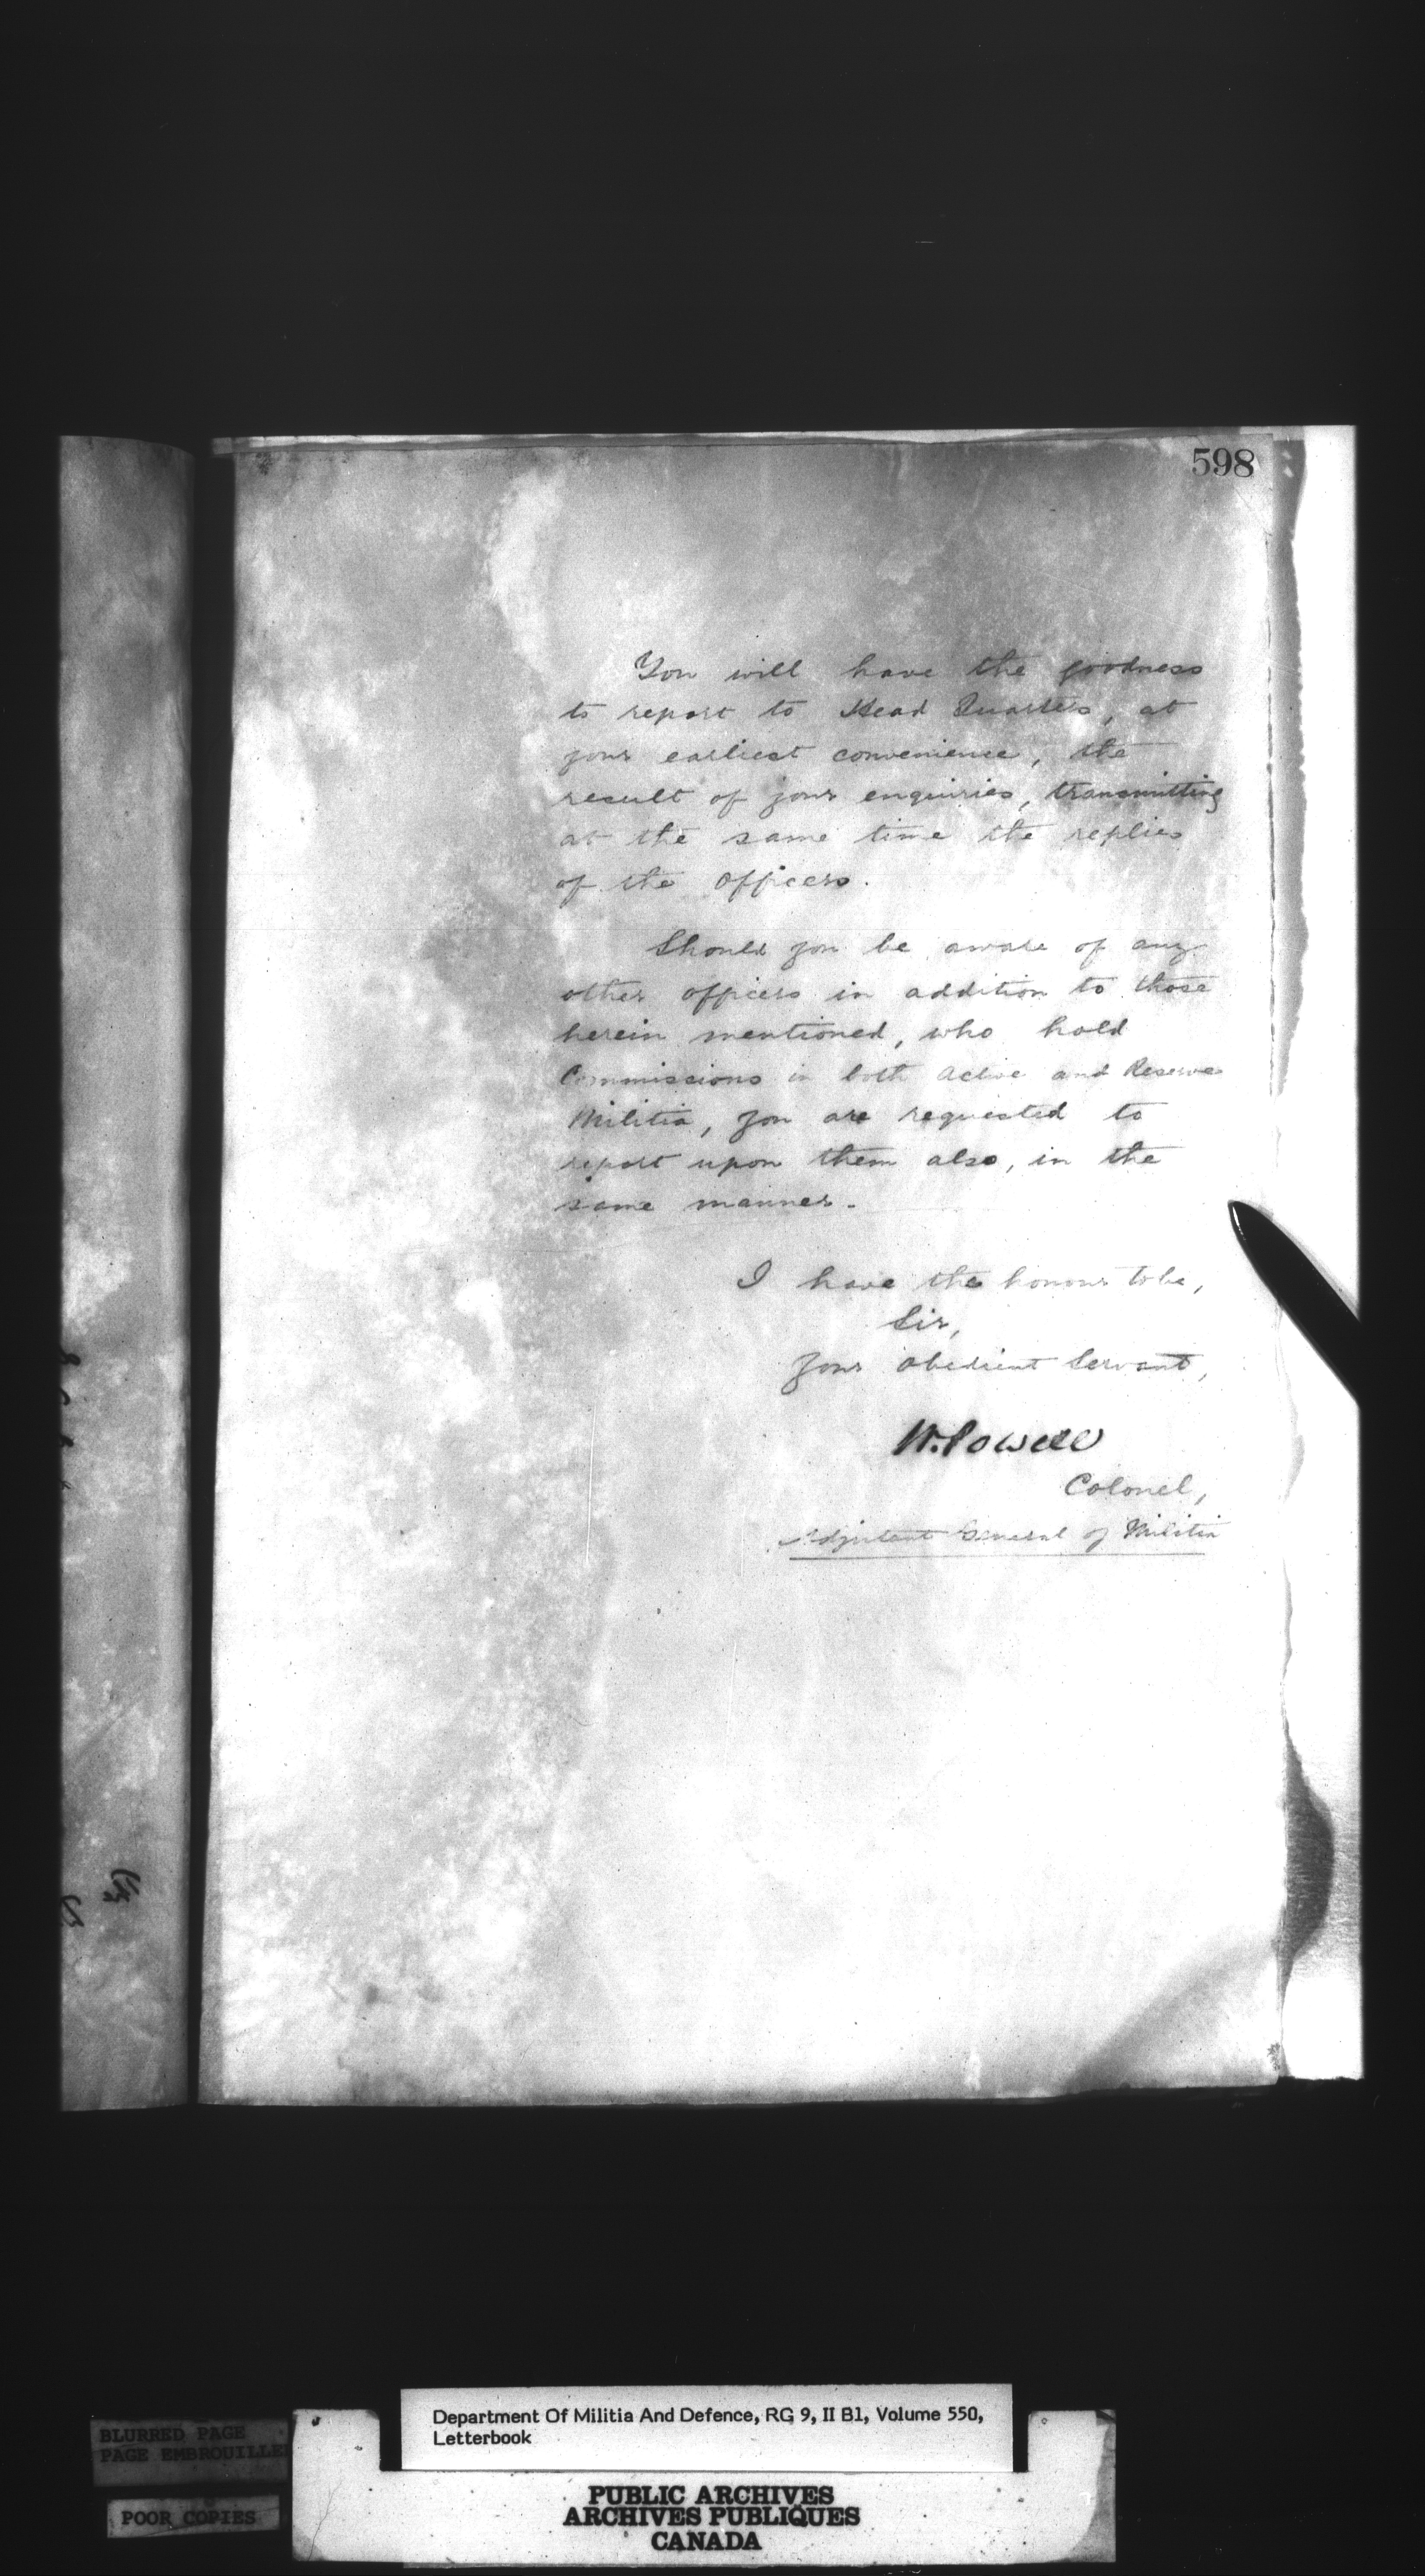 598
You will have the goodness
to report to Head Quarters, at
your earliest convenience, the
result of your enquiries, transmitting
at the same time the replies
of the officers.
Should you be aware of any
other officers in addition to those
herein mentioned, who hold
Commissions in both Active and Reserve
Militia, you are requested to
report upon them also, in the
same manner.
I have the honour to be,
Sir,
Your obedient Servant,
W. Powell
Colonel,
Adjutant General of Militia
BLURRED PAGE
PAGE EMBROUILLEE
POOR COPIES
Department Of Militia And Defence, RG 9, II B1, Volume 550,
Letterbook
PUBLIC ARCHIVES
ARCHIVES PUBLIQUES
CANADA